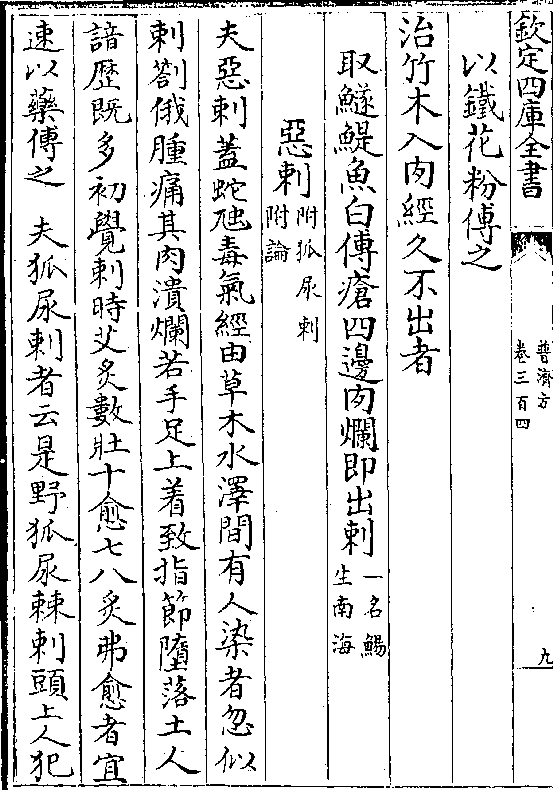 欽定四庫全書
普濟方
卷三百四
九
以鐵花粉傅之
治竹木入肉經久不出者
取鱁鯷魚白傅瘡四邊肉爛即出刺一名鰑生南海
惡刺附狐尿刺附論
夫惡刺蓋蛇虺毒氣經由草木水澤間有人染者忽似
刺劄俄腫痛其肉潰爛若手足上着致指節墮落土人
諳歴既多初覺刺時艾炙數壯十愈七八炙弗愈者宜
速以藥傅之　夫狐尿刺者云是野狐尿棘刺頭上人犯